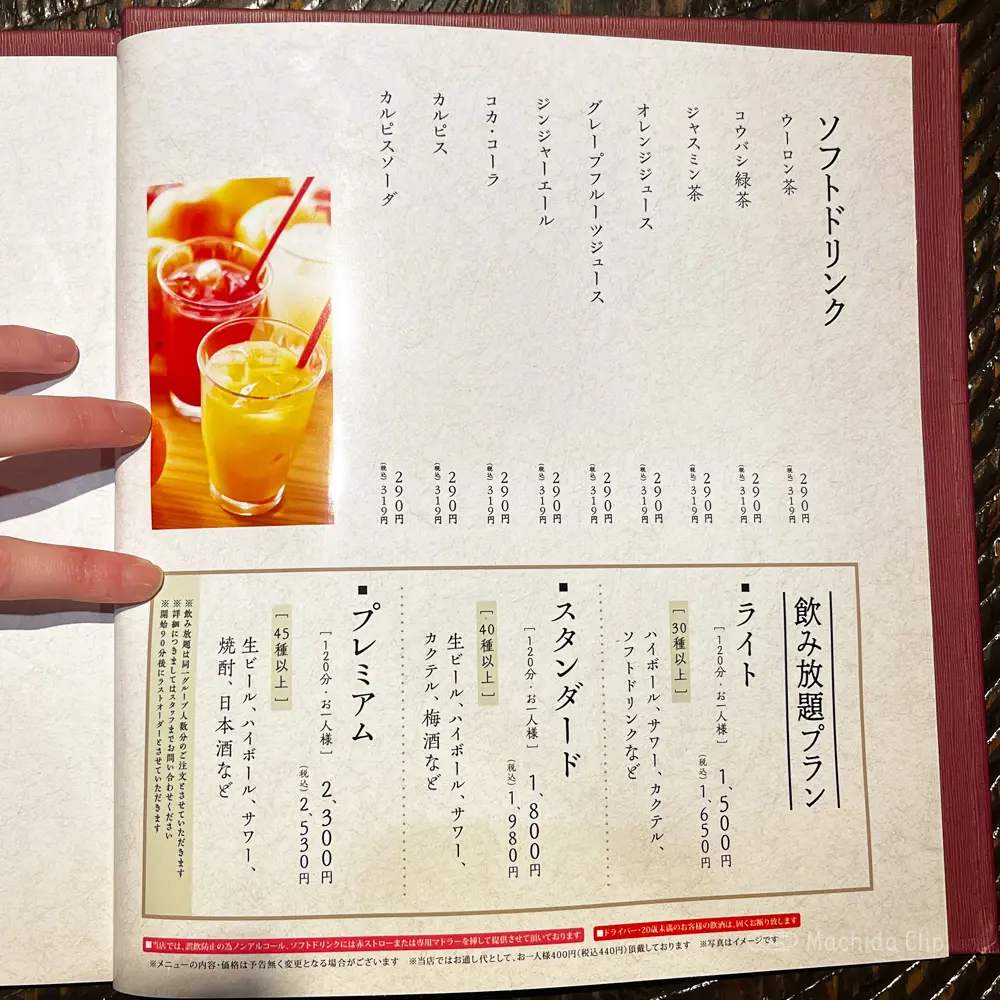 ソフトドリンク
ウーロン茶
290円
(税込) 319円
コウバシ緑茶
290円
(税込) 319円
ジャスミン茶
290円
(税込) 319円
オレンジジュース
290円
(税込) 319円
グレープフルーツジュース
290円
(税込) 319円
ジンジャーエール
290円
(税込) 319円
コカ・コーラ
290円
(税込) 319円
カルピス
290円
(税込) 319円
カルピスソーダ
290円
(税込) 319円
飲み放題プラン
■ライト
[120分・お一人様] 1,500円
(税込) 1,650円
[30種以上]
ハイボール、サワー、カクテル、
ソフトドリンクなど
■スタンダード
[120分・お一人様] 1,800円
(税込) 1,980円
[40種以上]
生ビール、ハイボール、サワー、
カクテル、梅酒など
■プレミアム
[120分・お一人様] 2,300円
(税込) 2,530円
[45種以上]
生ビール、ハイボール、サワー、
焼酎、日本酒など
※飲み放題は同一グループ人数分のご注文とさせていただきます
※詳細につきましてはスタッフまでお問い合わせください
※開始90分後にラストオーダーとさせていただきます
■当店では、誤飲防止の為ノンアルコール、ソフトドリンクには赤ストローまたは専用マドラーを挿して提供させて頂いております
■ドライバー・20歳未満のお客様の飲酒は、固くお断り致します
※メニューの内容・価格は予告無く変更となる場合がございます ※当店ではお通し代として、お一人様400円(税込440円)頂戴しております ※写真はイメージです
Machida Clip